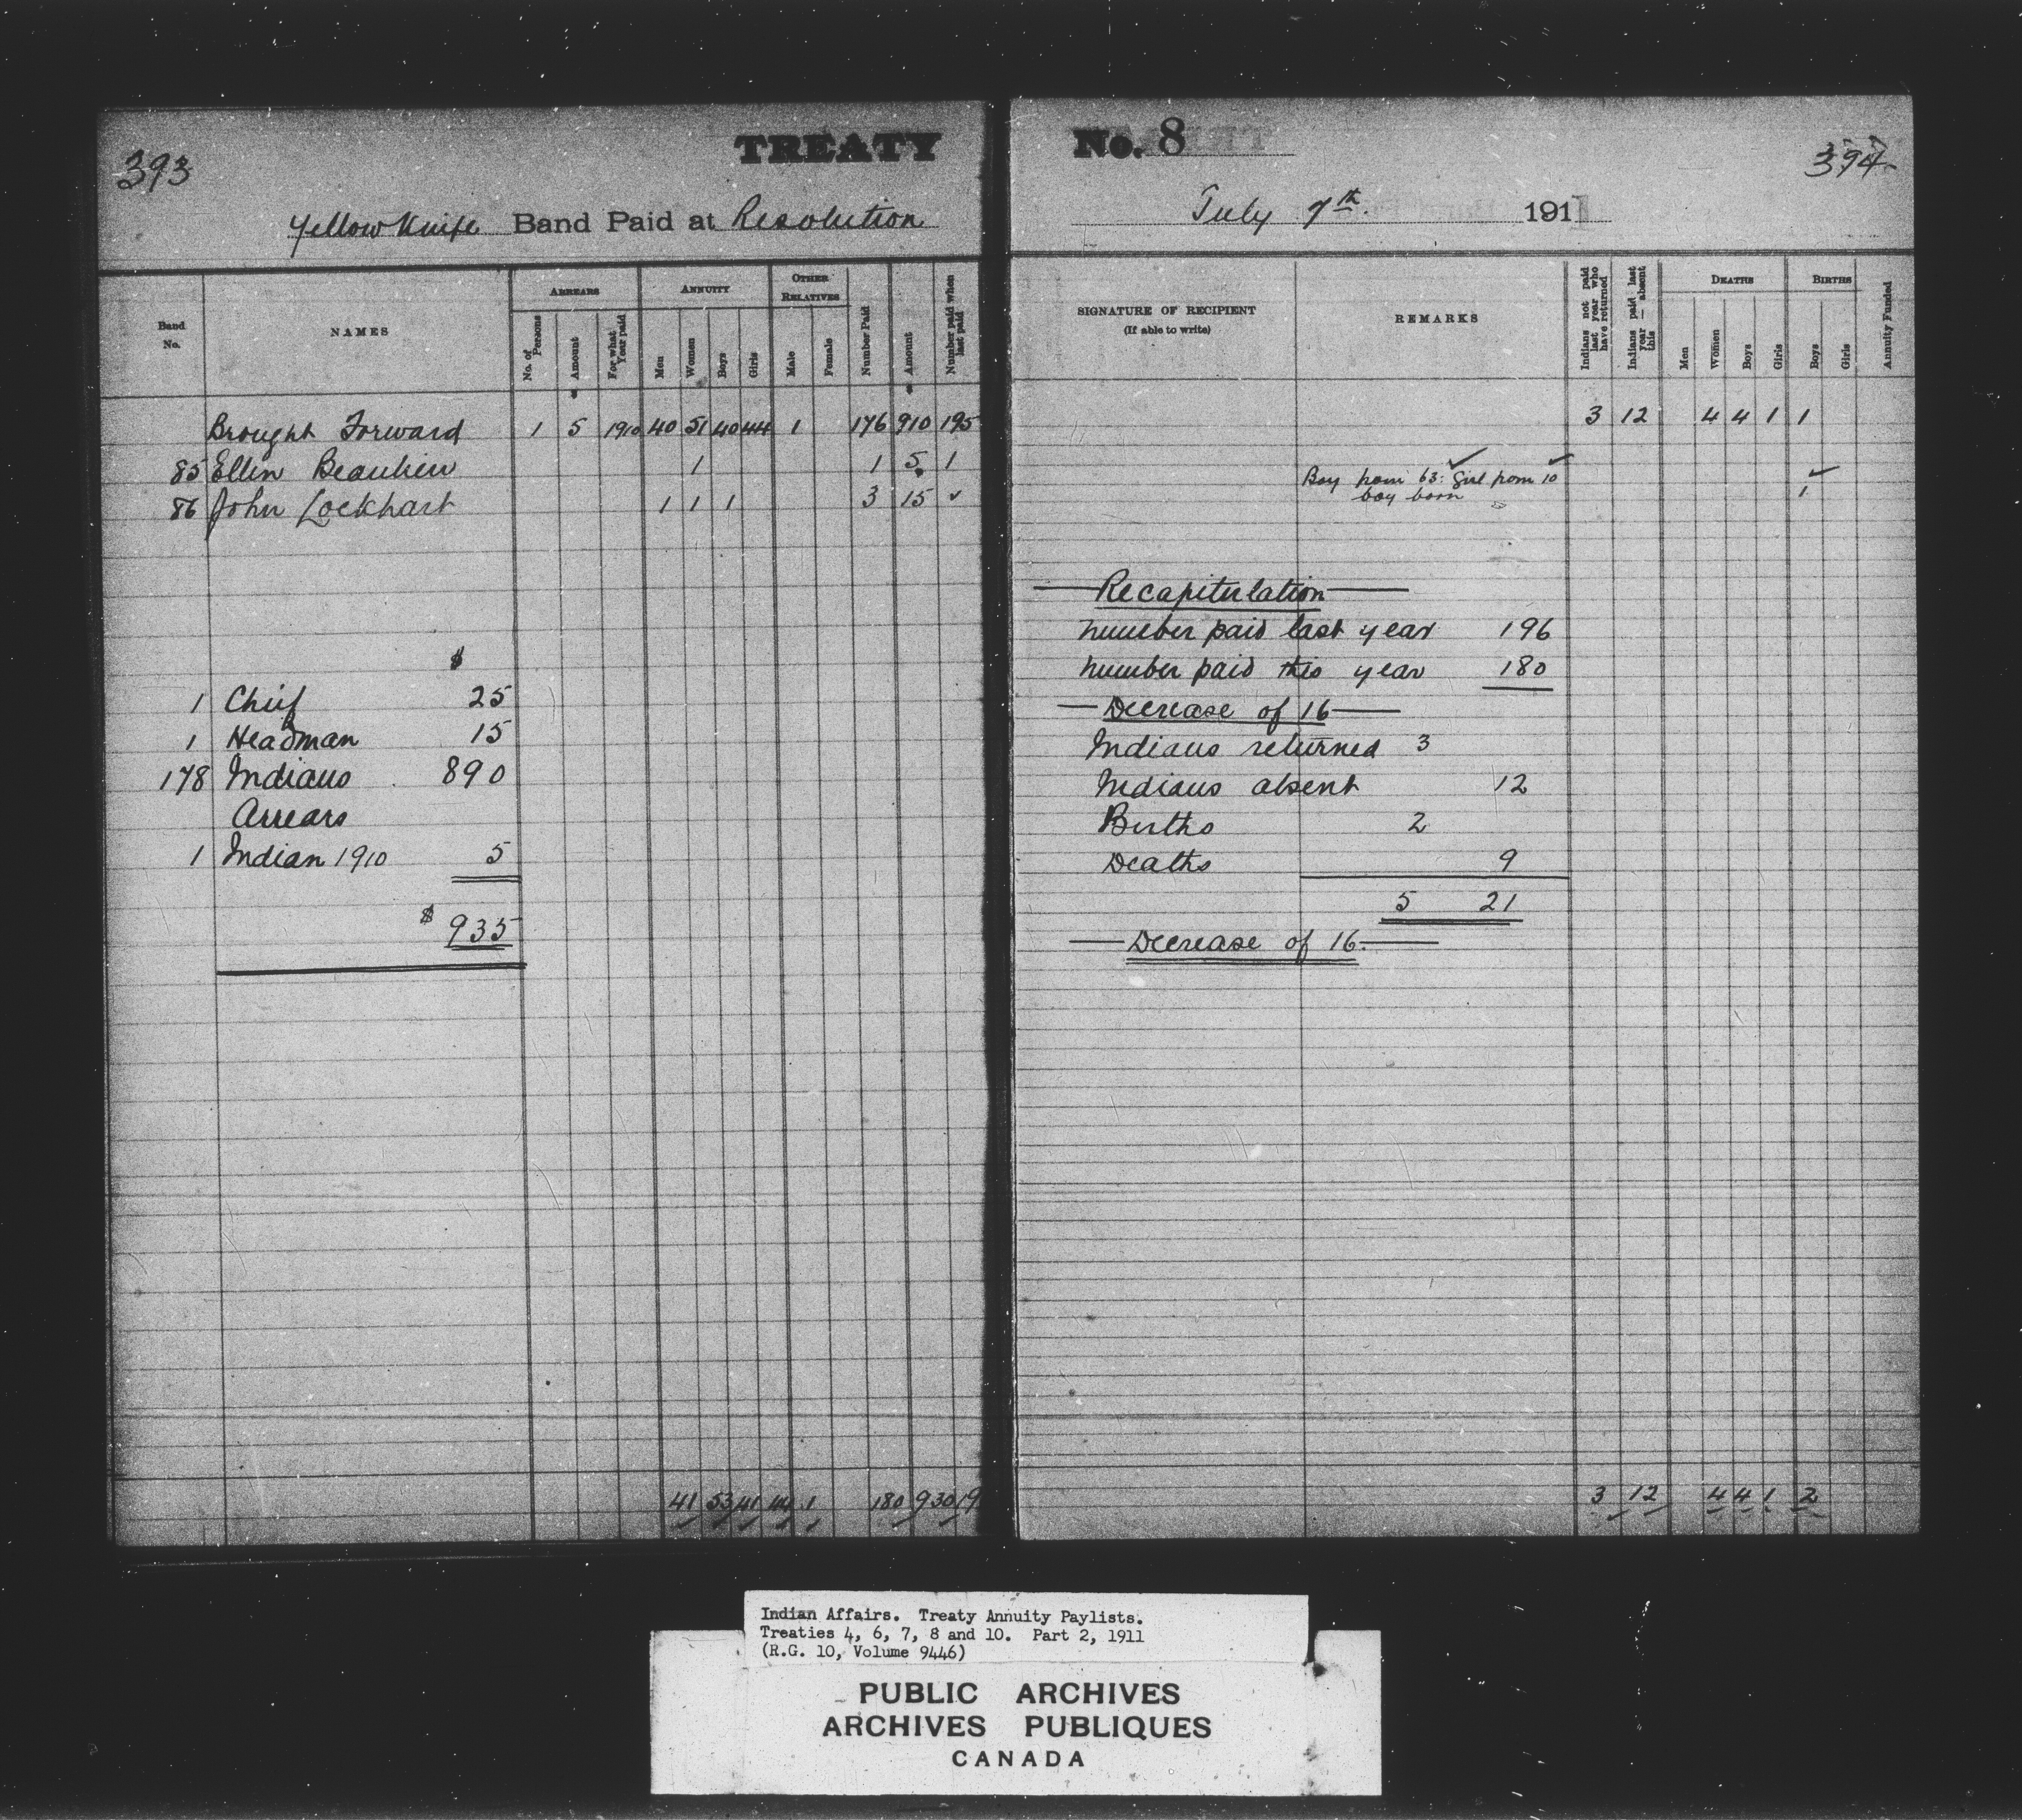 393
TREATY
Yellow Knife Band Paid at Resolution
Band No.
NAMES
ARREARS
No. of Persons
Amount
For what Year paid
ANNUITY
Men
Women
Boys
Girls
OTHER RELATIVES
Male
Female
Number Paid
Amount
Number paid when last paid
Brought Forward 1 5 1910 40 51 40 44 1 176 910 195
85 Ellen Beaulieu 1 1 5 1
86 John Lockhart 1 1 1 3 15 ✓
$
1 Chief 25
1 Headman 15
178 Indians 890
Arrears
1 Indian 1910 5
$ 935
41 53 41 44 1 180 930 19
No. 8
394
July 7th 1911
SIGNATURE OF RECIPIENT
(If able to write)
REMARKS
Indians not paid last year who have returned
Indians paid last year — absent this
DEATHS
Men
Women
Boys
Girls
BIRTHS
Boys
Girls
Annuity Funded
3 12 4 4 1 1
Boy from 63: Girl from 10
boy born 1
Recapitulation
number paid last year 196
number paid this year 180
Decrease of 16
Indians returned 3
Indians absent 12
Births 2
Deaths 9
5 21
Decrease of 16
3 12 4 4 1 2
Indian Affairs. Treaty Annuity Paylists.
Treaties 4, 6, 7, 8 and 10. Part 2, 1911
(R.G. 10, Volume 9446)
PUBLIC ARCHIVES
ARCHIVES PUBLIQUES
CANADA